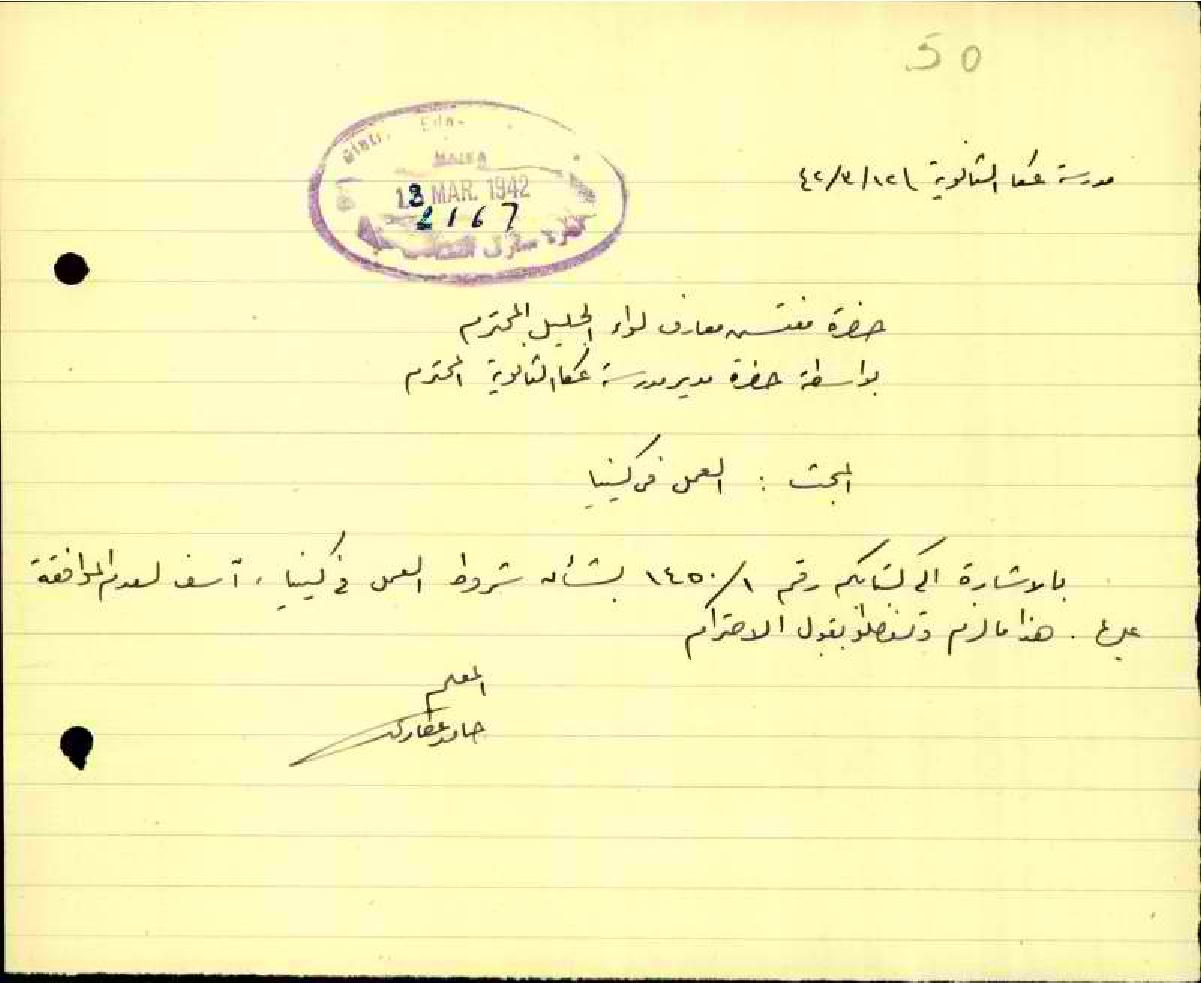 50
Distr. Edu-
HAIFA
13 MAR. 1942
2167
مدرسة عكا الثانوية ١٢/٣/٤٢
حضرة مفتش معارف لواء الجليل المحترم
بواسطة حضرة مدير مدرسة عكا الثانوية المحترم
المبحث : العمل في كينيا
بالاشارة الى كتابكم رقم ١٤٥٠/١ بشأن شروط العمل في كينيا ، آسف لعدم الموافقة
عليها . هذا ما لزم وتفضلوا بقبول الاحترام
المعلم
حامد عطاري